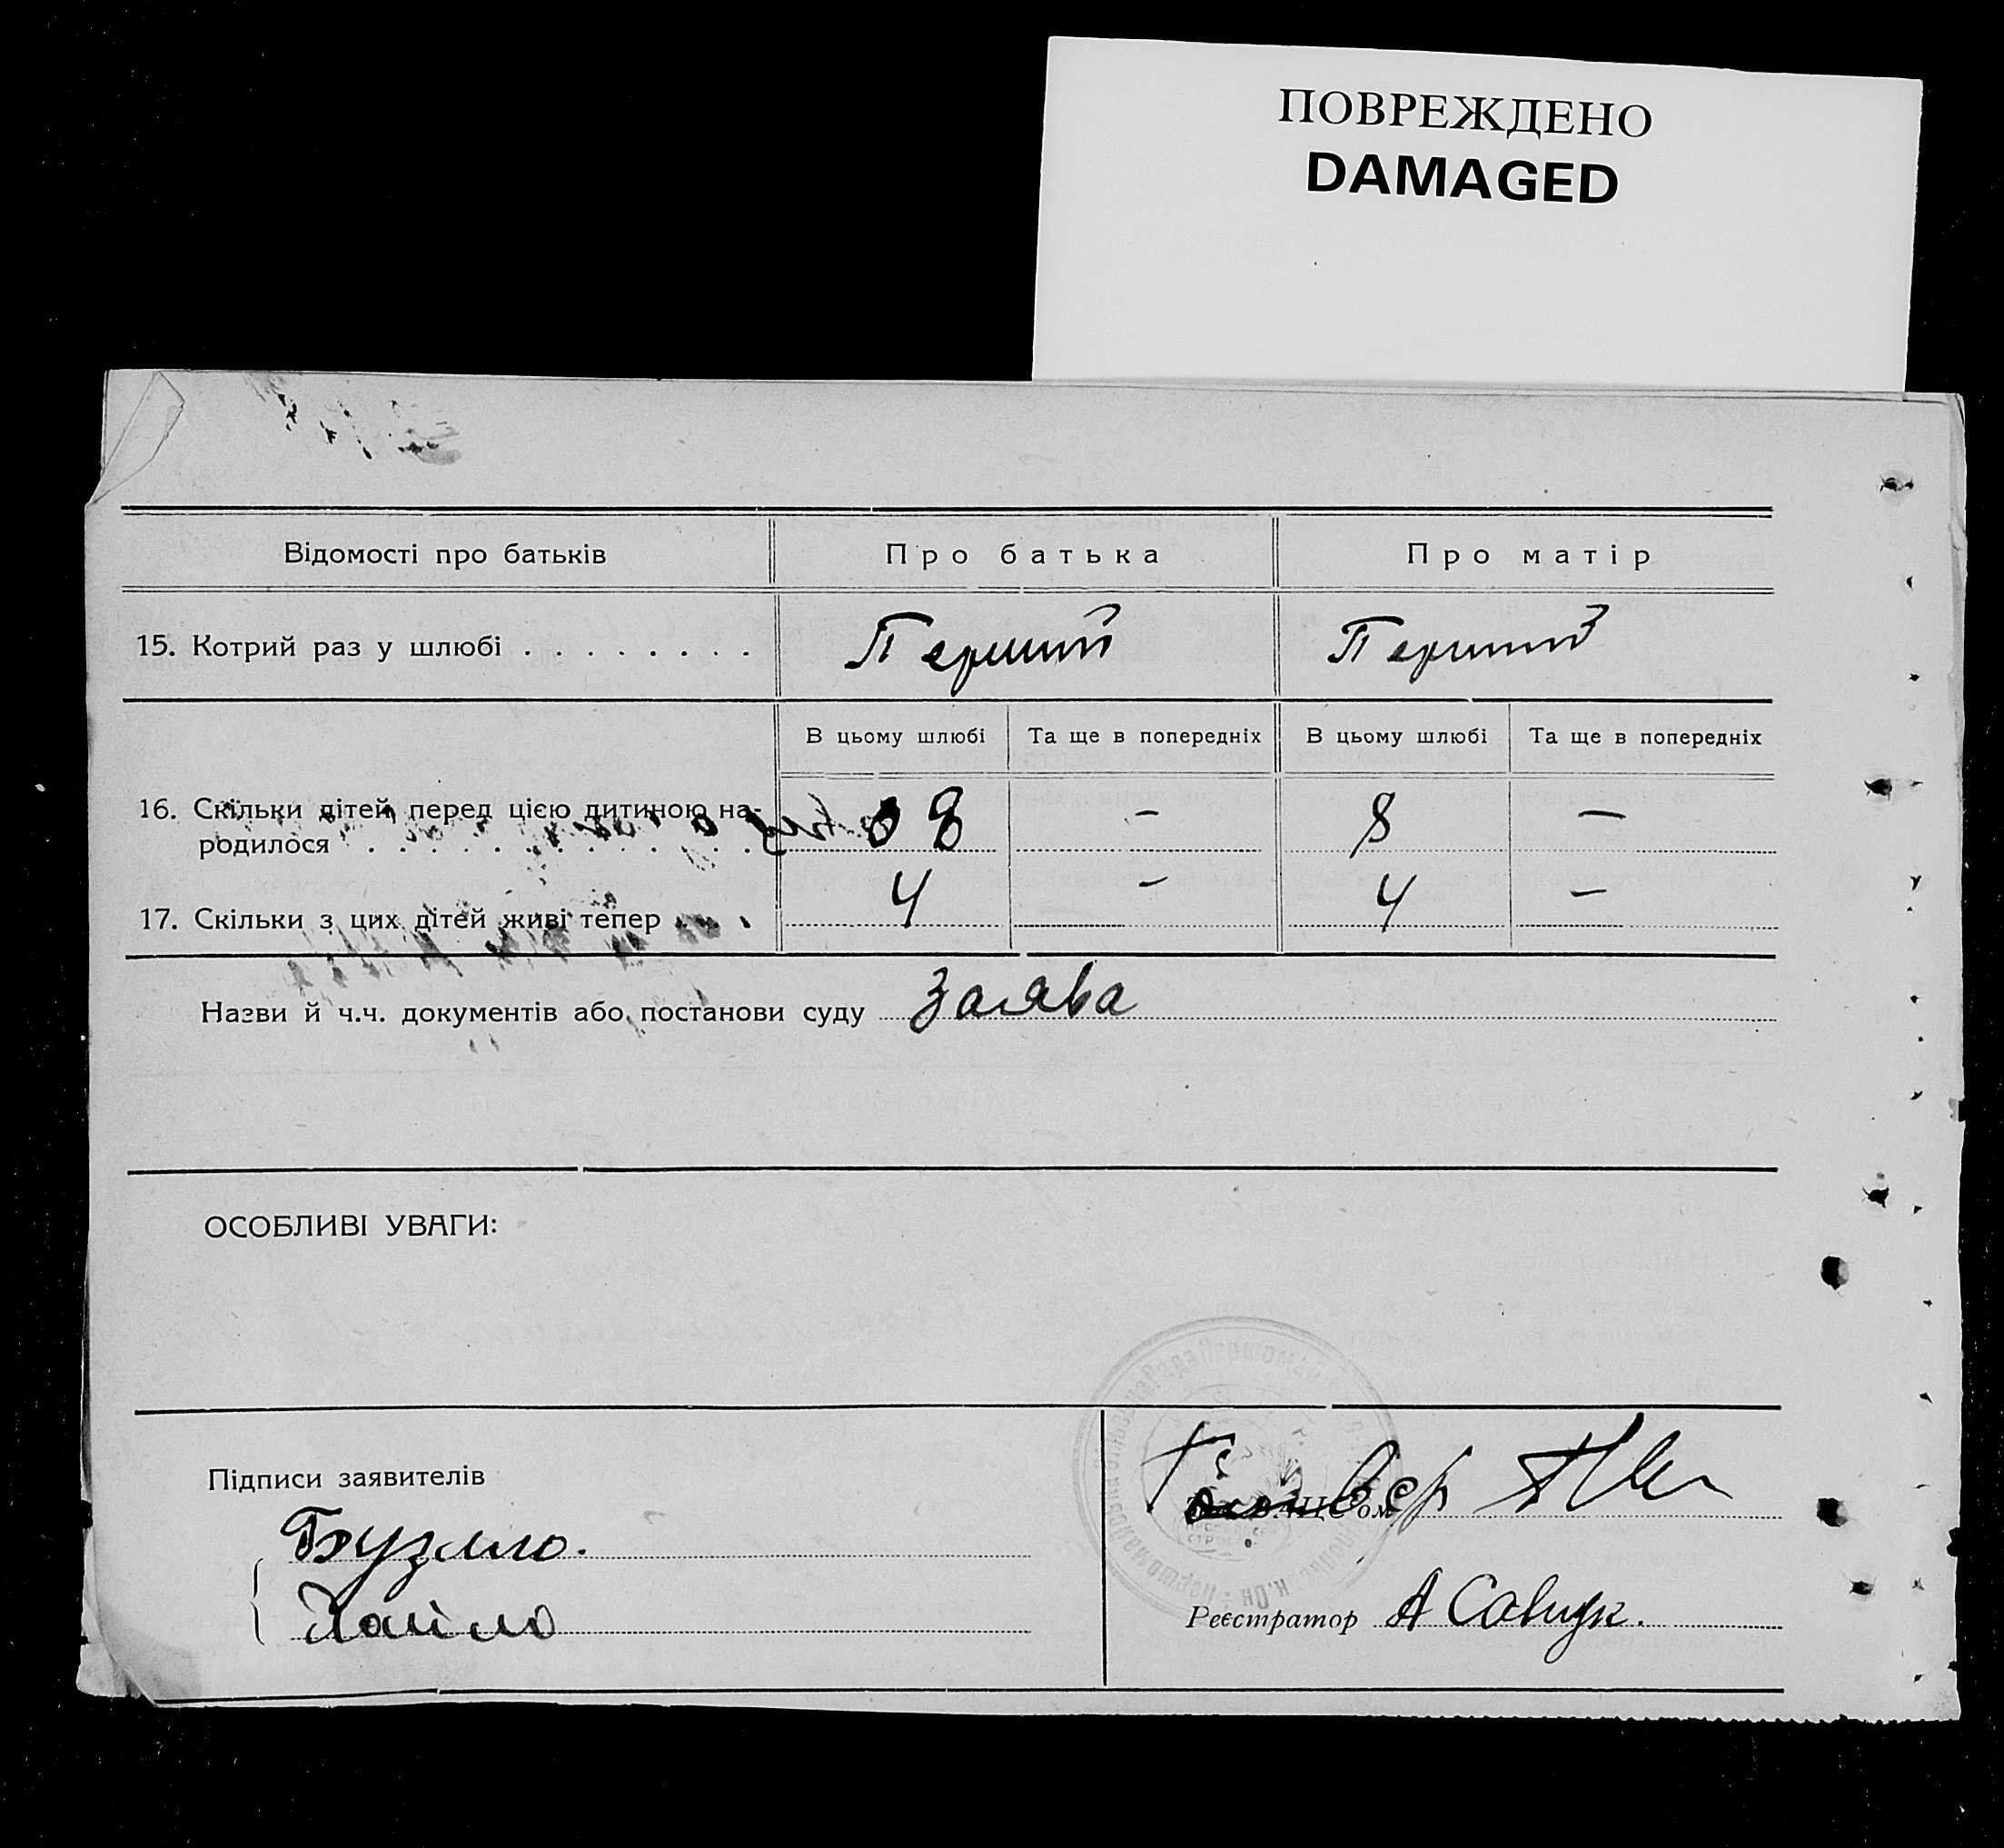 ПОВРЕЖДЕНО
DAMAGED
Відомості про батьків Про батька Про матір
15. Котрий раз у шлюбі . . . . . . . . Перший Перший
В цьому шлюбі Та ще в попередніх В цьому шлюбі Та ще в попередніх
16. Скільки дітей перед цією дитиною на-
родилося . . . . . . . . . . . . 8 – 8 –
17. Скільки з цих дітей живі тепер . . . 4 – 4 –
Назви й ч.ч. документів або постанови суду Заява
ОСОБЛИВІ УВАГИ:
Підписи заявителів
Реєстратор А Савчук.